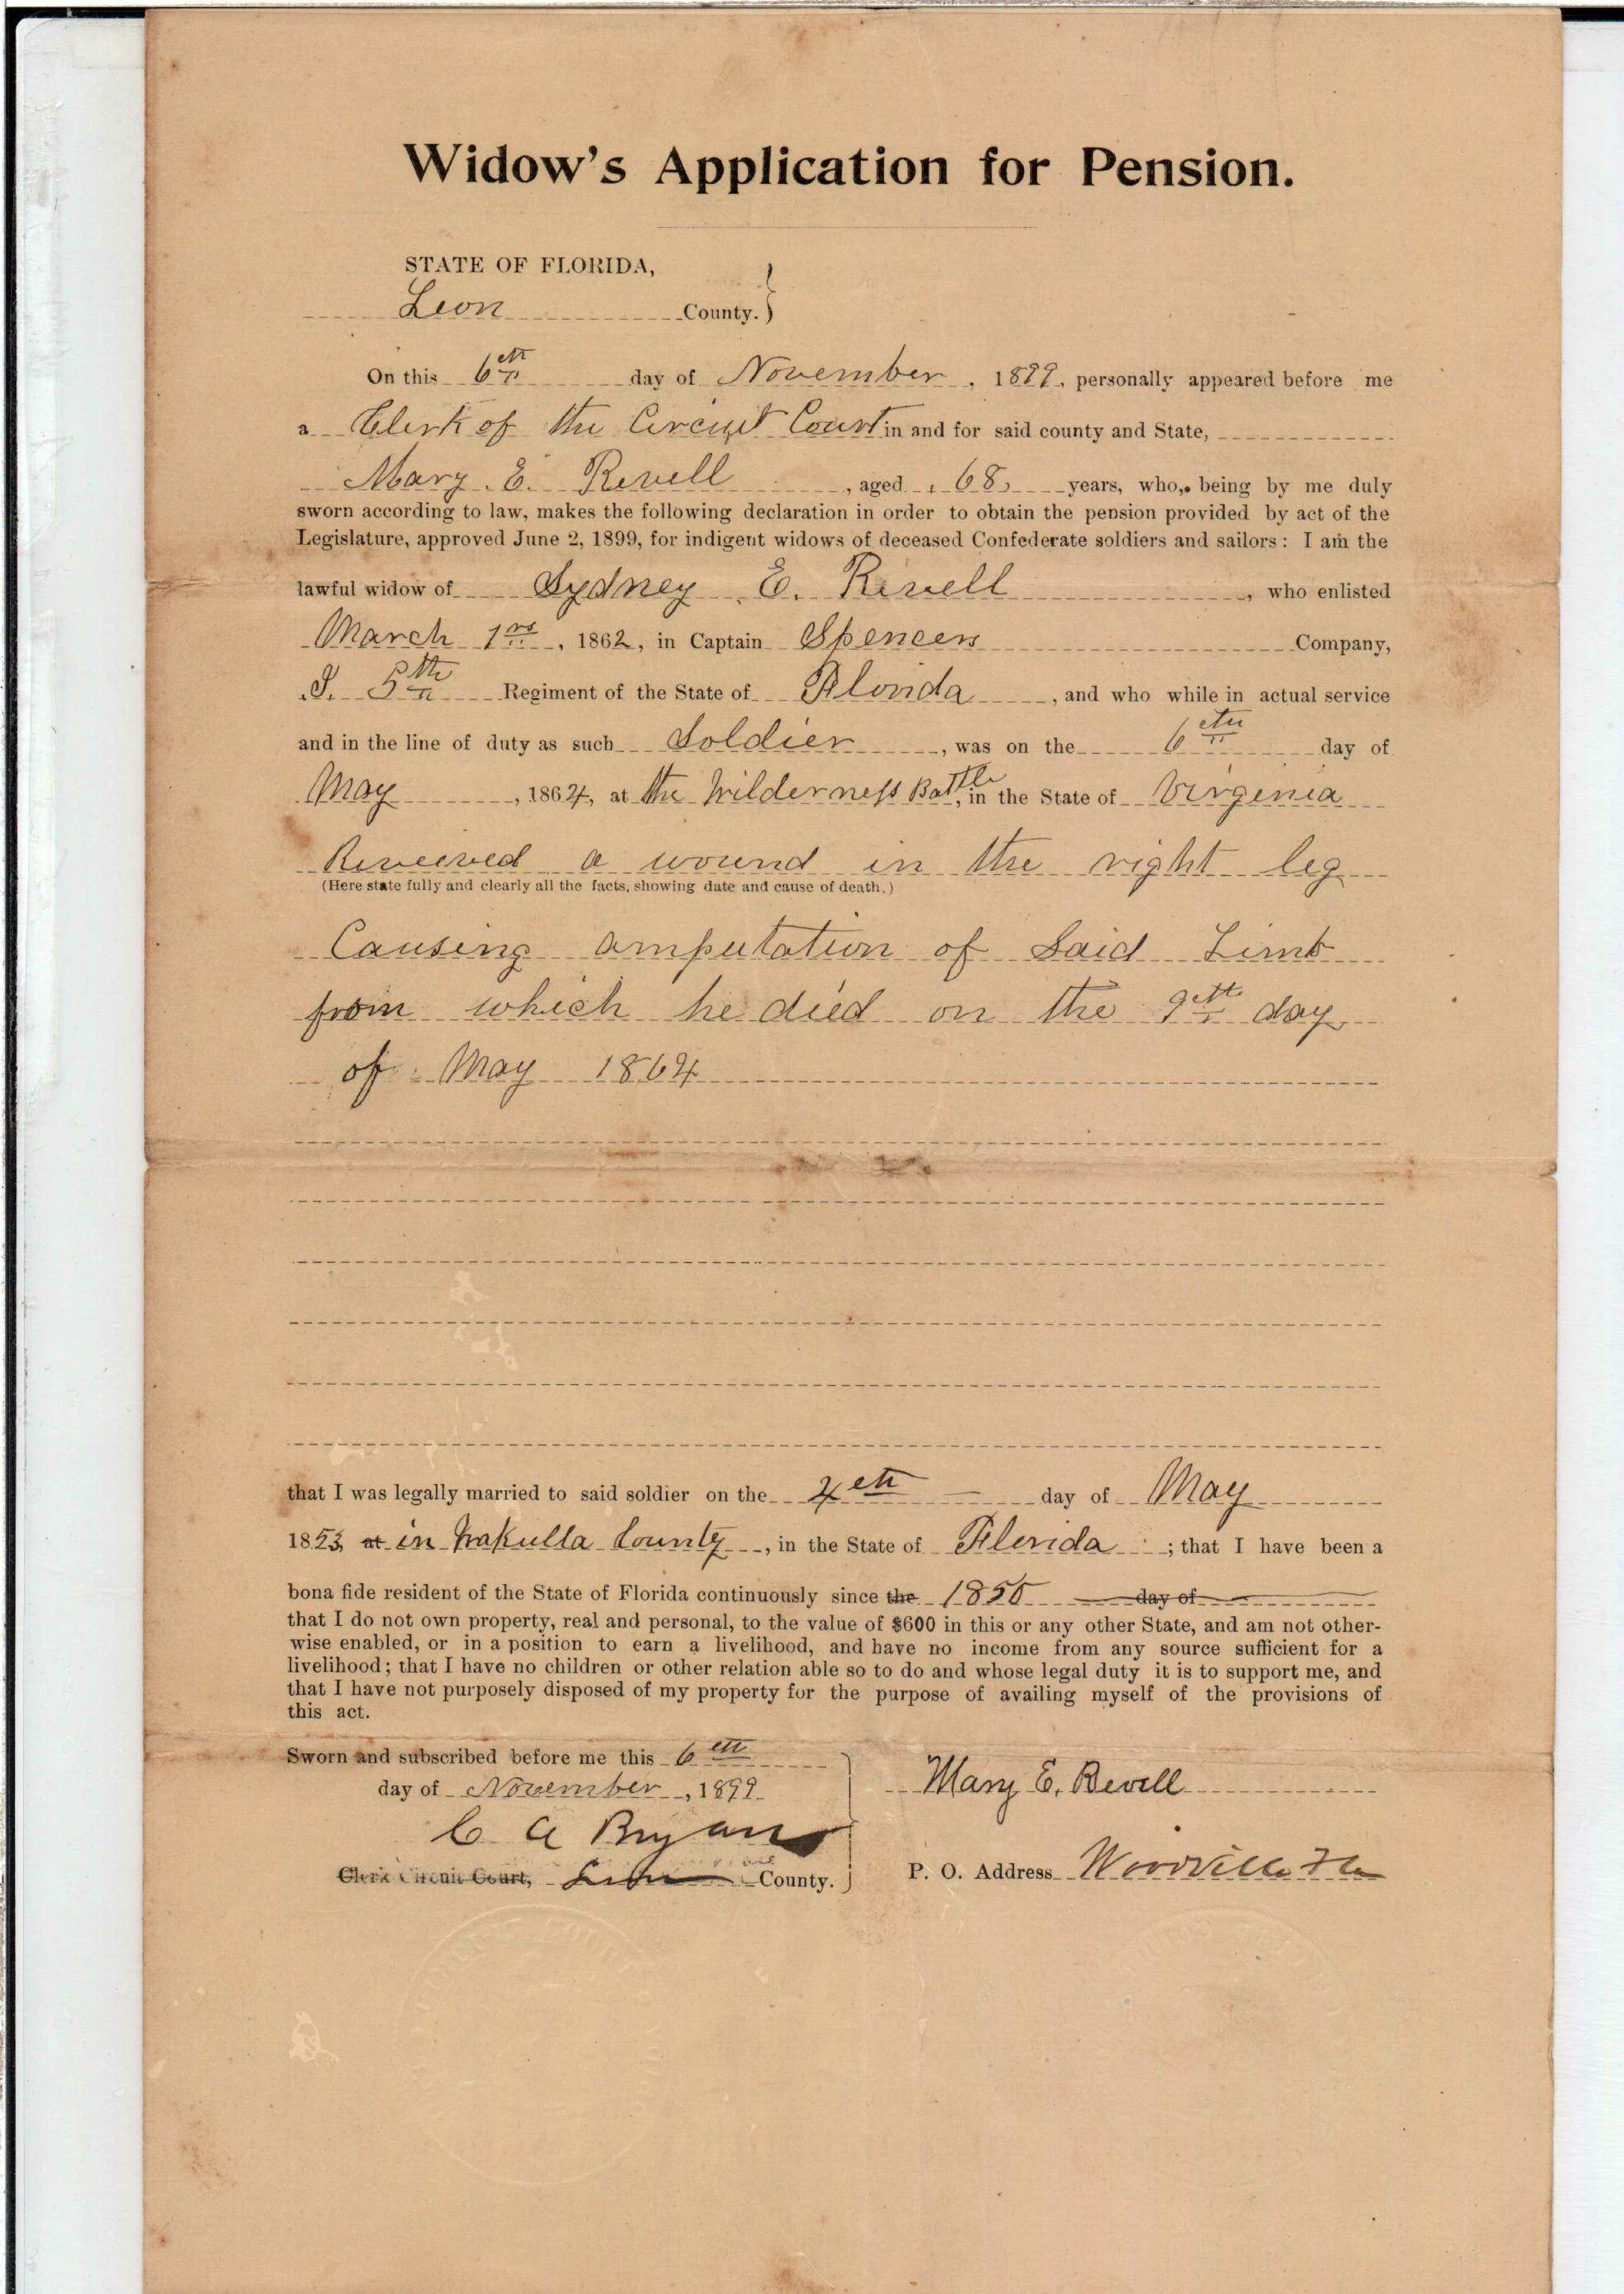 Widow's Application for Pension.
STATE OF FLORIDA,
Leon County.
On this 6th day of November, 1899, personally appeared before me
a Clerk of the Circuit Court in and for said county and State,
Mary. E. Revell, aged 68 years, who, being by me duly
sworn according to law, makes the following declaration in order to obtain the pension provided by act of the
Legislature, approved June 2, 1899, for indigent widows of deceased Confederate soldiers and sailors: I am the
lawful widow of Sydney E. Revell, who enlisted
March 1rs, 1862, in Captain Spencers Company,
I. 5th Regiment of the State of Florida, and who while in actual service
and in the line of duty as such Soldier, was on the 6th day of
May, 1864, at the Wilderness Battle, in the State of Virginia
Received a wound in the right leg
(Here state fully and clearly all the facts, showing date and cause of death.)
Causing amputation of Said Limb
from which he died on the 9th day
of May 1864
that I was legally married to said soldier on the 4th day of May
1853 at in Wakulla County, in the State of Florida; that I have been a
bona fide resident of the State of Florida continuously since the 1850 day of
that I do not own property, real and personal, to the value of $600 in this or any other State, and am not other-
wise enabled, or in a position to earn a livelihood, and have no income from any source sufficient for a
livelihood; that I have no children or other relation able so to do and whose legal duty it is to support me, and
that I have not purposely disposed of my property for the purpose of availing myself of the provisions of
this act.
Sworn and subscribed before me this 6th
day of November, 1899
C A Bryan
Clerk Circuit Court, Leon County.
Mary E. Revell
P. O. Address Woodville Fla